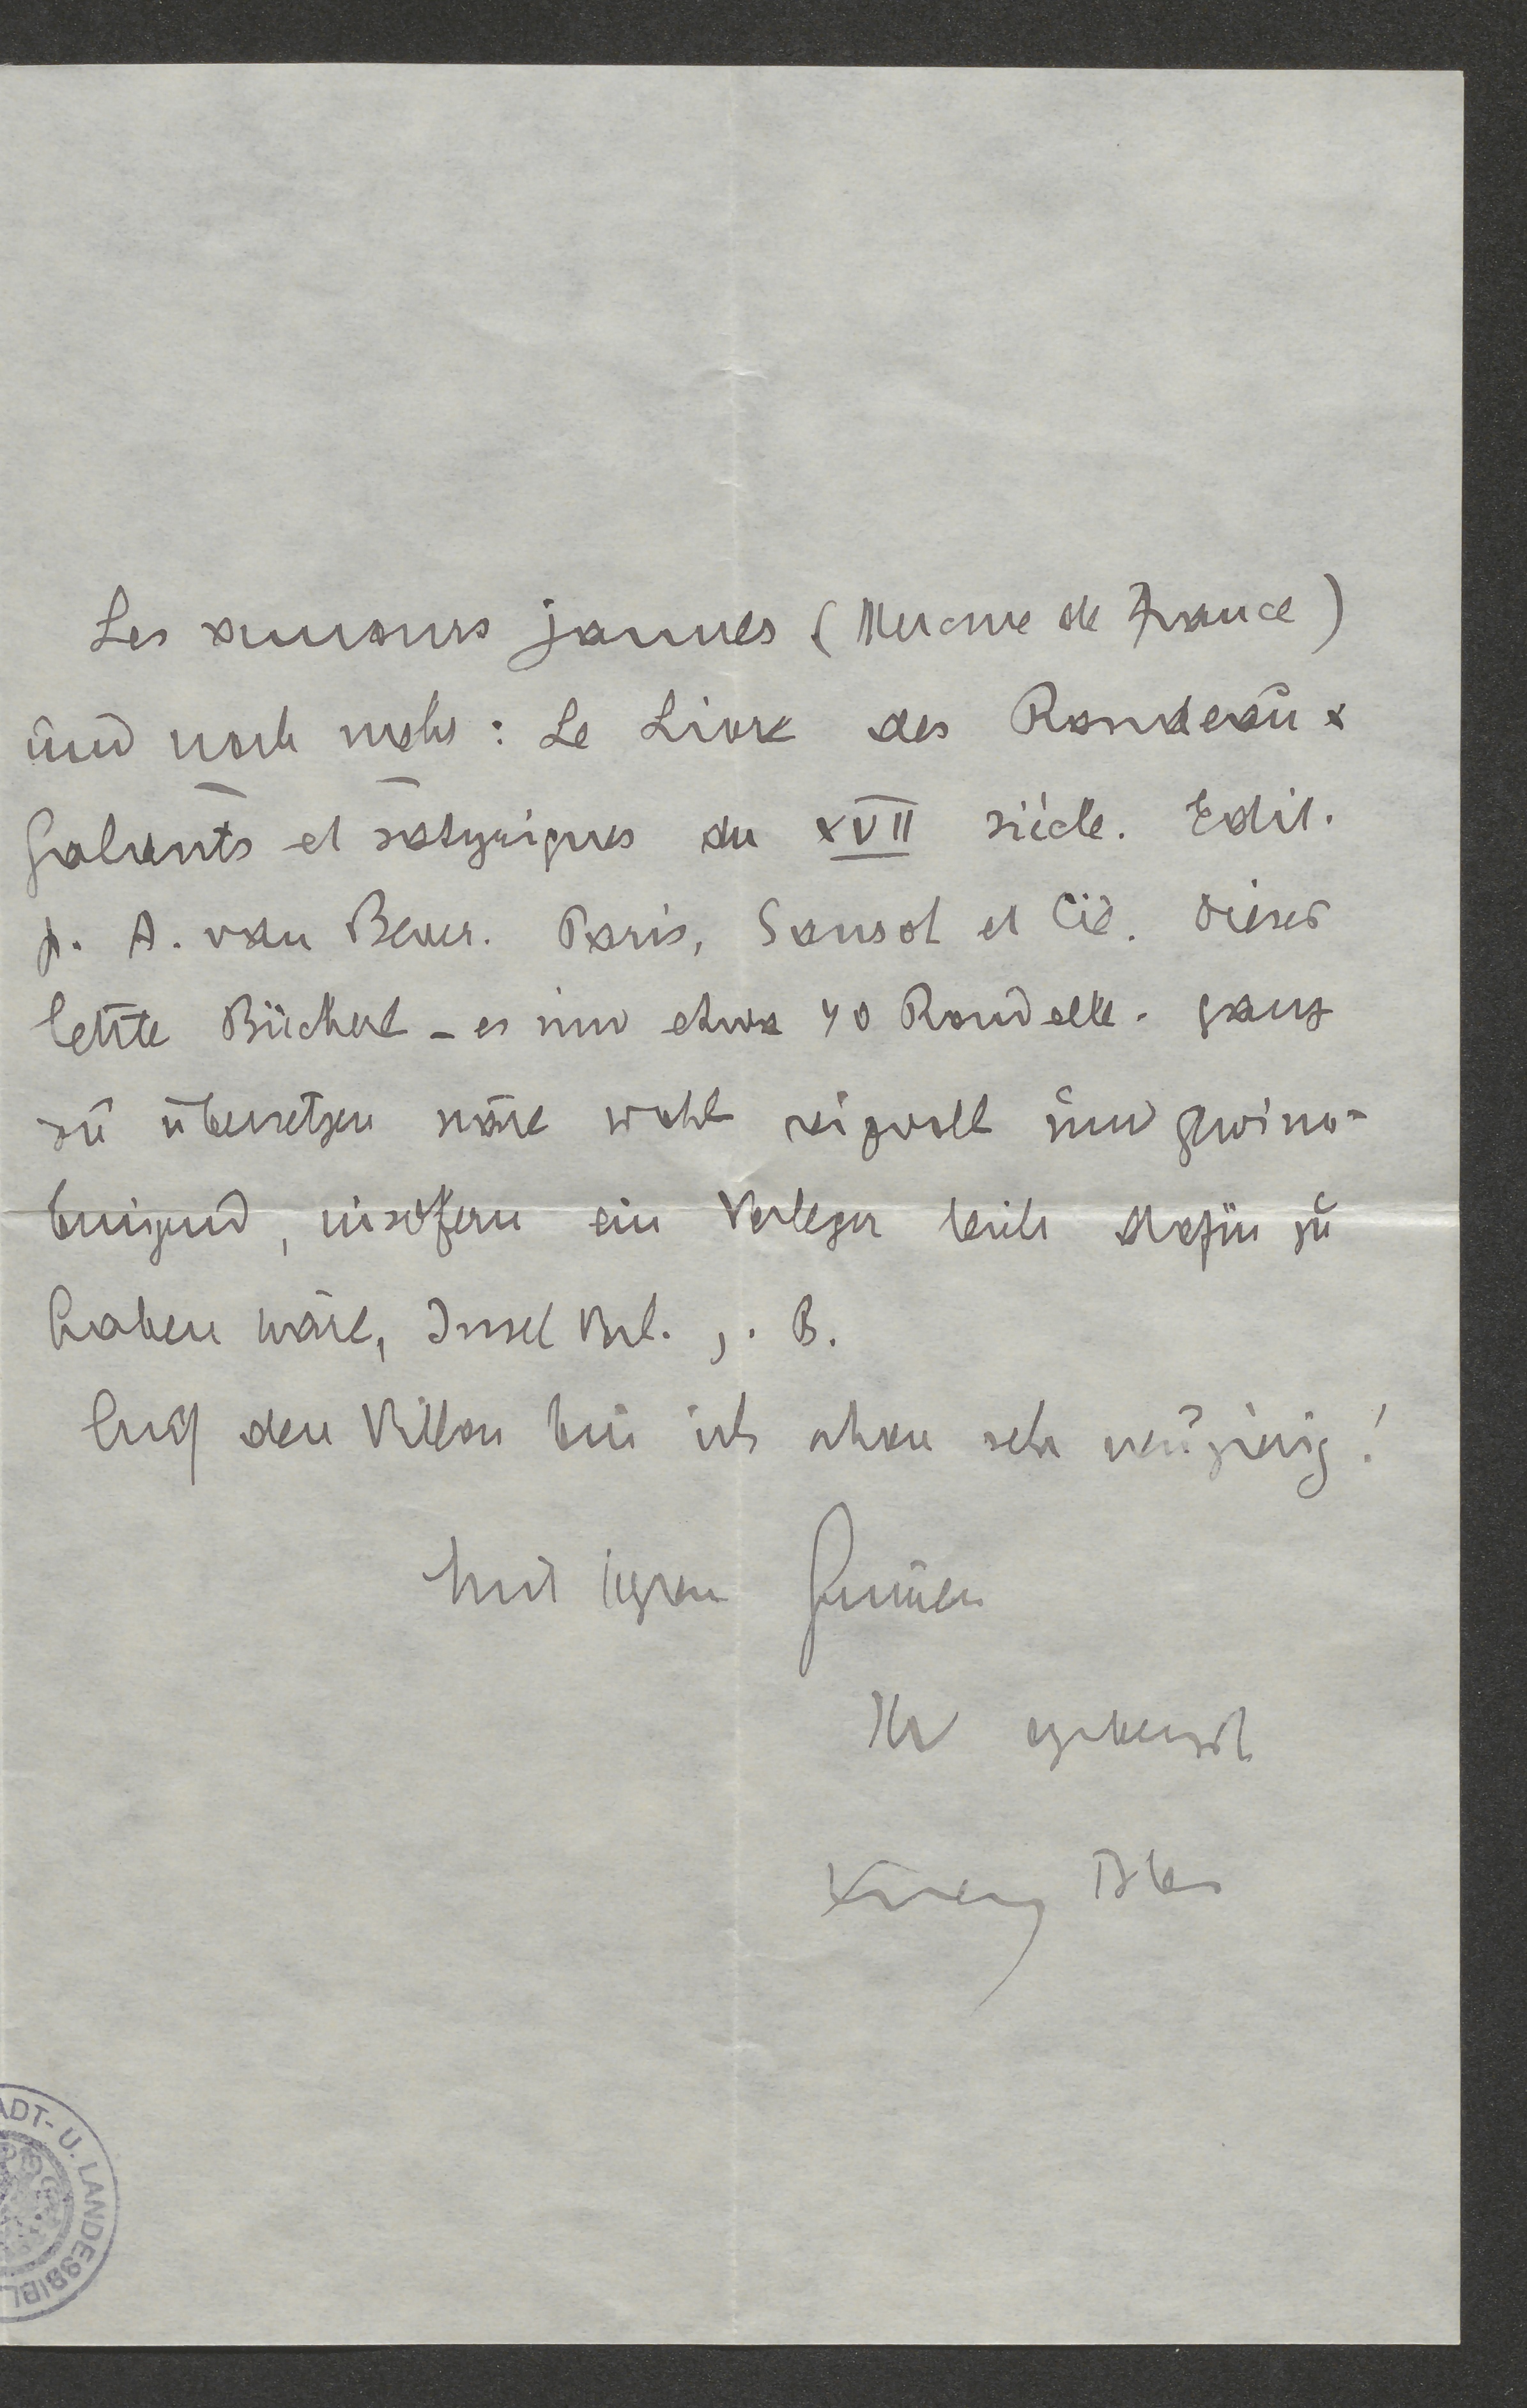 Les amours jaunes (Mercure de France)
und noch mehr: Le Livre des Rondeaux
galants et satyriques du XVII siécle. Edit.
p. A. van Bever. Paris, Sansot et Cie. Dieses
letzte Bücherl – es sind etwa 40 Rondelle. ganz
zu übersetzen wäre wohl reizvoll und gewinn-
bringend, insofern ein Verleger leicht dafür zu
haben wäre, Insel Verl. z. B.
Auf den Villon bin ich schon sehr neugierig!
Mit Grüßen
Ihr ergebenst
ADT- U. LANDESBIBL